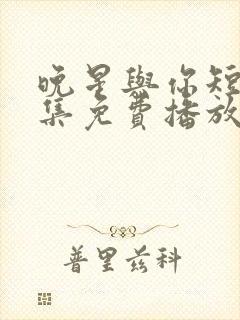 晚星與你短
集免費播放
普里兹科